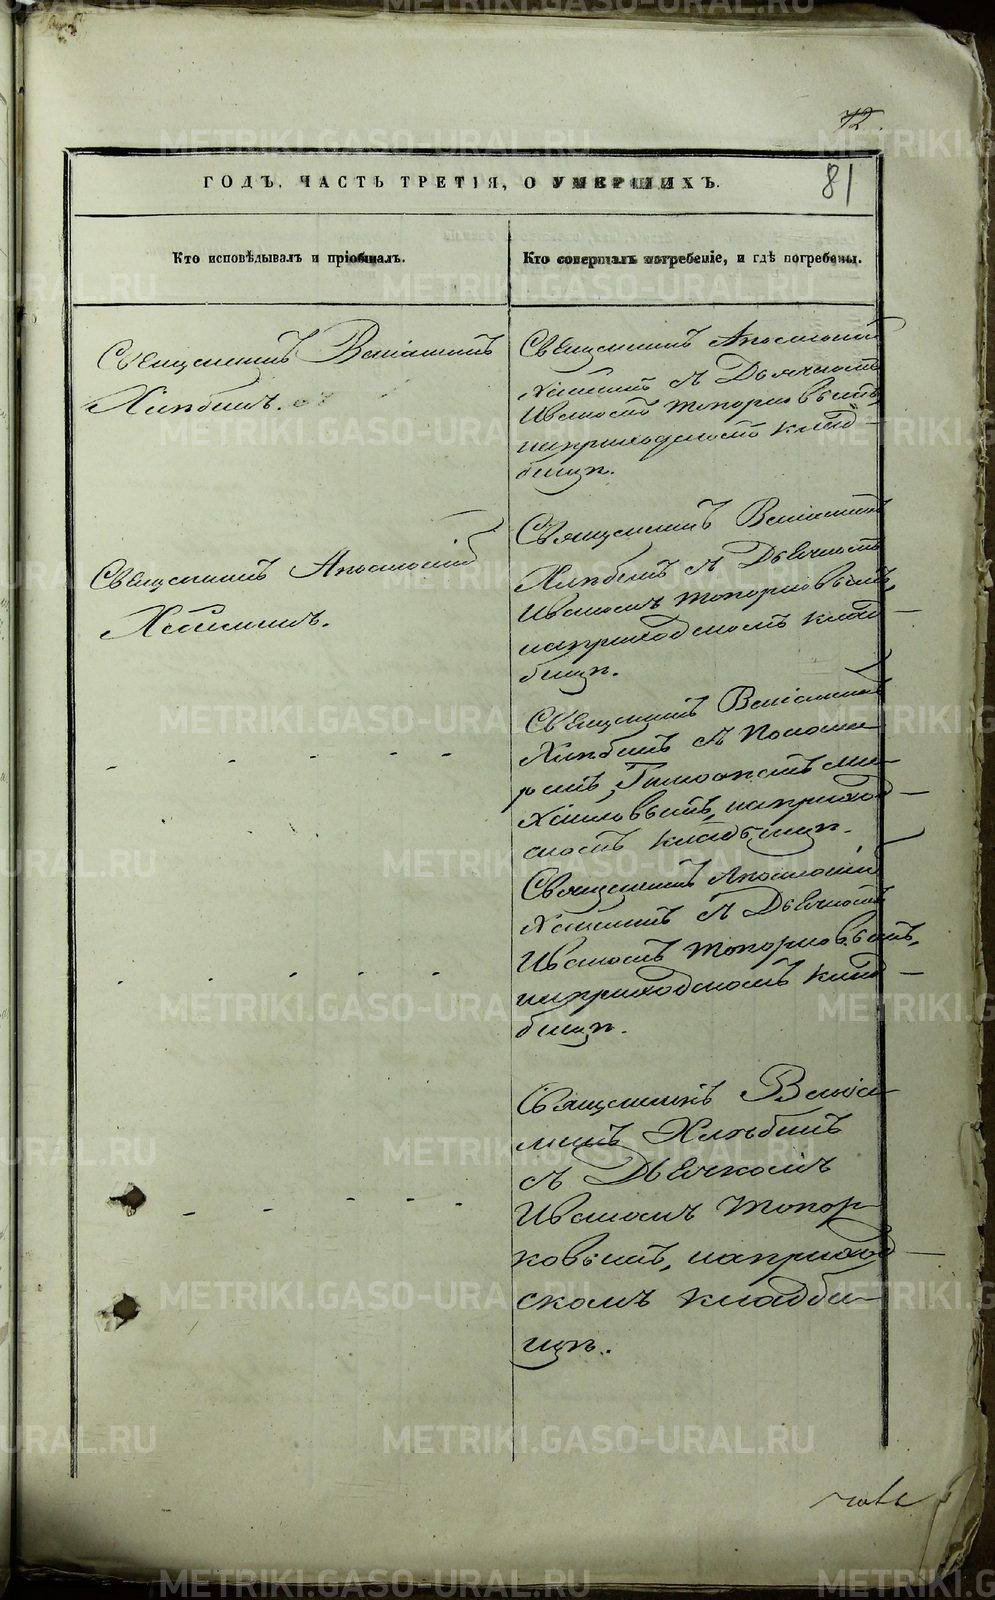 72.
81
ГОДЪ, ЧАСТЬ ТРЕТІЯ, О УМЕРШИХЪ.
Кто исповѣдывалъ и пріобщалъ.
Кто совершалъ погребеніе, и гдѣ погребены.
Священникъ Веніаминъ
Хлѣбинъ.
Священникъ
Священникъ
съ Дьячкомъ
Иваномъ Топорковымъ,
на приходскомъ клад-
бищѣ.
Священникъ Веніаминъ
Хлѣбинъ съ Дьячкомъ
Иваномъ Топорковымъ,
на приходскомъ клад-
бищѣ.
Священникъ Веніаминъ
Хлѣбинъ съ Понома-
ремъ
на приход-
скомъ кладбищѣ.
Священникъ
съ Дьячкомъ
Иваномъ Топорковымъ,
на приходскомъ клад-
бищѣ.
Священникъ Веніа-
минъ Хлѣбинъ
съ Дьячкомъ
Иваномъ Топор-
ковымъ, на приход-
скомъ кладби-
щѣ.
METRIKI.GASO-URAL.RU